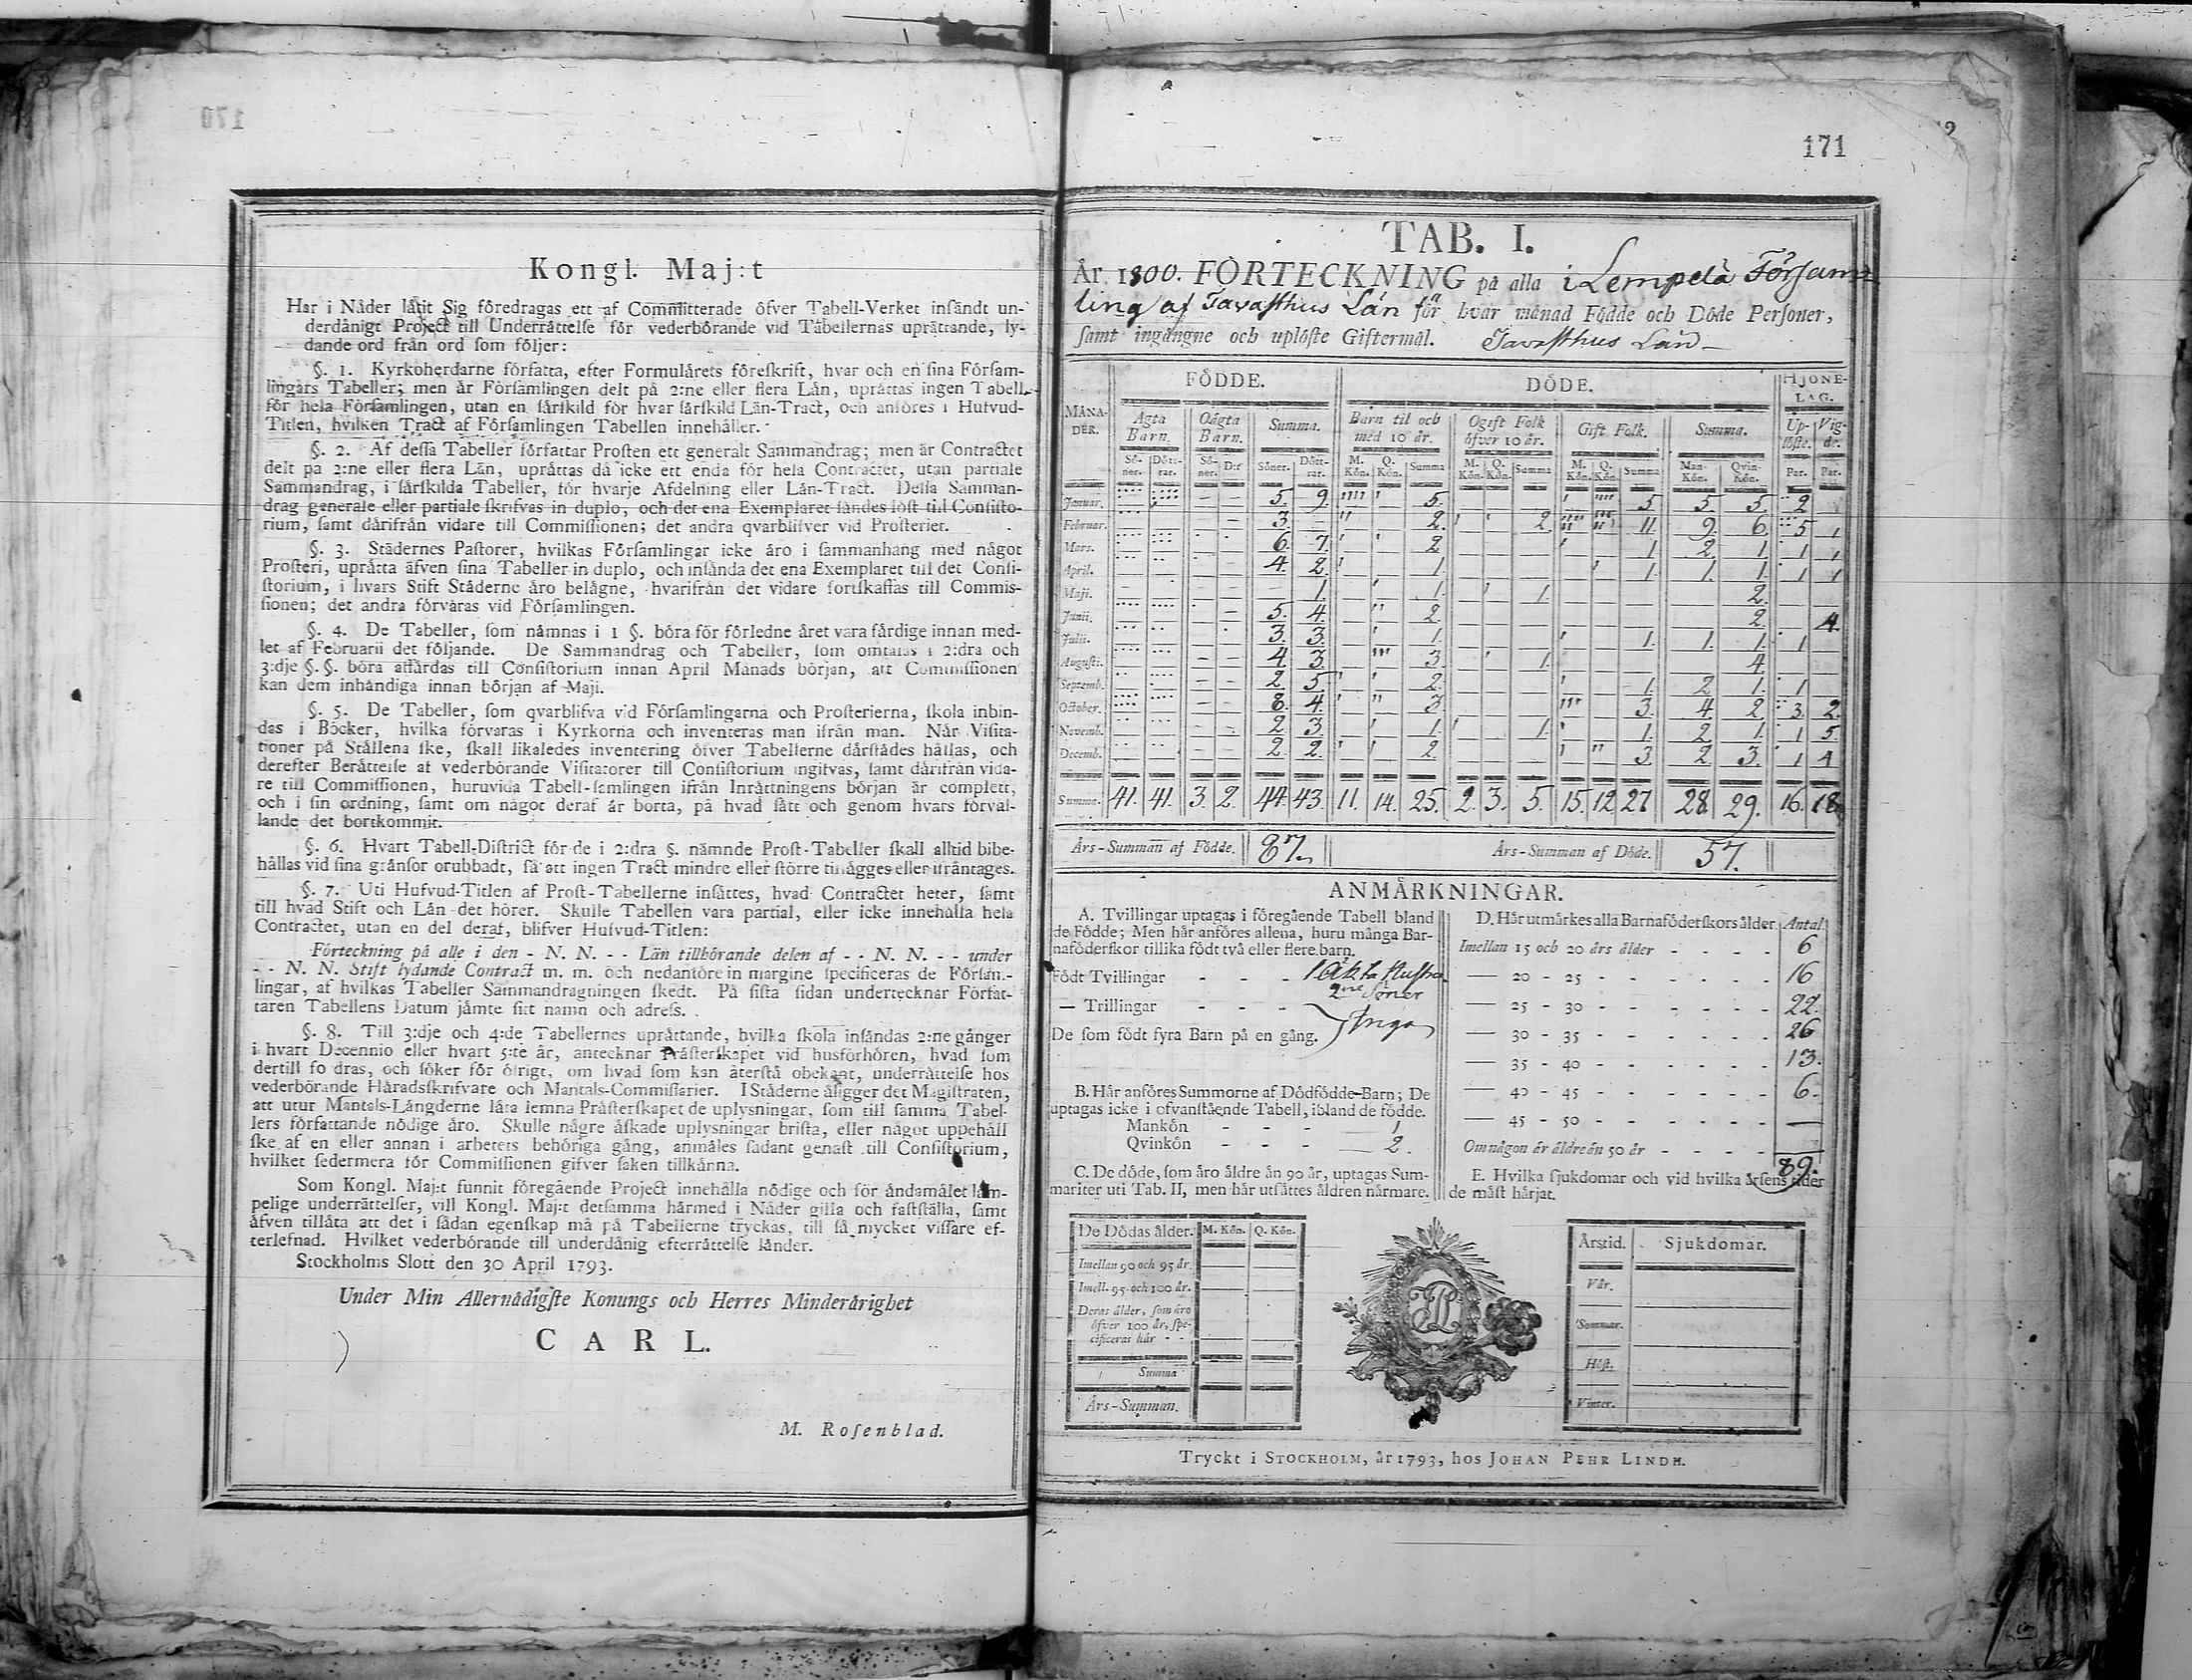 171
Kongl. Maj:t
Har i Nåder låtit Sig föredragas ett af Committerade öfver Tabell-Verket insändt un-
derdånigt Project till Underrättelse för vederbörande vid Tabellernas uprättande, ly-
dande ord från ord som följer:
§. 1. Kyrkoherdarne författa, efter Formulärets föreskrift, hvar och en sina Försam-
lingars Tabeller; men är Församlingen delt på 2:ne eller flera Län, uprättas ingen Tabell
för hela Församlingen, utan en särskild för hvar särskild Län-Tract, och anföres i Hufvud-
Titlen, hvilken Tract af Församlingen Tabellen innehåller.
§. 2. Af dessa Tabeller författar Prosten ett generalt Sammandrag; men är Contractet
delt på 2:ne eller flera Län, uprättas då icke ett enda för hela Contractet, utan partiale
Sammandrag, i särskilda Tabeller, för hvarje Afdelning eller Län-Tract. Dessa Samman-
drag generale eller partiale skrifvas in duplo, och det ena Exemplaret sändes löst till Consisto-
rium, samt därifrån vidare till Commissionen; det andra qvarblifver vid Prosteriet.
§. 3. Städernes Pastorer, hvilkas Församlingar icke äro i sammanhang med något
Prosteri, uprätta äfven sina Tabeller in duplo, och insända det ena Exemplaret till det Consi-
storium, i hvars Stift Städerne äro belägne, hvarifrån det vidare fortskaffas till Commis-
sionen; det andra förvaras vid Församlingen.
§. 4. De Tabeller, som nämnas i 1 §. böra för förledne året vara färdige innan med-
let af Februarii det följande. De Sammandrag och Tabeller, som omtalas i 2:dra och
3:dje §. §. böra affärdas till Consistorium innan April Månads början, att Commissionen
kan dem inhändiga innan början af Maji.
§. 5. De Tabeller, som qvarblifva vid Församlingarna och Prosterierna, skola inbin-
das i Böcker, hvilka förvaras i Kyrkorna och inventeras man ifrån man. När Visita-
tioner på Ställena ske, skall likaledes inventering öfver Tabellerne därstädes hållas, och
derefter Berättelse af vederbörande Visitatorer till Consistorium ingifvas, samt därifrån vida-
re till Commissionen, huruvida Tabell-samlingen ifrån Inrättningens början är complett,
och i sin ordning, samt om något deraf är borta, på hvad sätt och genom hvars förvål-
lande det bortkommit.
§. 6. Hvart Tabell-District för de i 2:dra §. nämnde Prost-Tabeller skall alltid bibe-
hållas vid sina gränsor orubbadt, så att ingen Tract mindre eller större tillägges eller ifråntages.
§. 7. Uti Hufvud-Titlen af Prost-Tabellerne insättes, hvad Contractet heter, samt
till hvad Stift och Län det hörer. Skulle Tabellen vara partial, eller icke innehålla hela
Contractet, utan en del deraf, blifver Hufvud-Titlen:
Förteckning på alle i den - N. N. - - Län tillhörande delen af - - N. N. - - under
- - N. N. Stift lydande Contract m. m. och nedanföre in margine specificeras de Försam-
lingar, af hvilkas Tabeller Sammandragningen skedt. På sista sidan undertecknar Förfat-
taren Tabellens Datum jämte sitt namn och adress.
§. 8. Till 3:dje och 4:de Tabellernes uprättande, hvilka skola insändas 2:ne gånger
i hvart Decennio eller hvart 5:te år, antecknar Prästerskapet vid husförhören, hvad som
dertill fordras, och söker för öfrigt, om hvad som kan återstå obekant, underrättelse hos
vederbörande Häradsskrifvare och Mantals-Commissarier. I Städerne åligger det Magistraten,
att utur Mantals-Längderne låta lemna Prästerskapet de uplysningar, som till samma Tabel-
lers författande nödige äro. Skulle någre äskade uplysningar brista, eller något uppehåll
ske af en eller annan i arbetets behöriga gång, anmäles sådant genast till Consistorium,
hvilket sedermera för Commissionen gifver saken tillkänna.
Som Kongl. Maj:t funnit föregående Project innehålla nödige och för ändamålet läm-
pelige underrättelser, vill Kongl. Maj:t detsamma härmed i Nåder gilla och fastställa, samt
äfven tillåta att det i sådan egenskap må på Tabellerne tryckas, till så mycket vissare ef-
terlefnad. Hvilket vederbörande till underdånig efterrättelse länder.
Stockholms Slott den 30 April 1793.
Under Min Allernådigste Konungs och Herres Minderårighet
CARL.
M. Rosenblad.
TAB. I.
År 1800. FÖRTECKNING på alla i Lempelä Försam-
ling af Tavasthus Län för hvar månad Födde och Döde Personer,
samt ingångne och uplöste Giftermål. Tavasthus Län
FÖDDE. DÖDE. HJONE-LAG.
MÅNA-DER. Ägta Barn. Oägta Barn. Summa. Barn til och med 10 år. Ogift Folk öfver 10 år. Gift Folk. Summa. Up-löste. Vig-de.
Sö-ner. Dött-rar. Sö-ner. D:r Söner. Dött-rar. M. Kön. Q. Kön. Summa M. Kön. Q. Kön. Summa M. Kön. Q. Kön. Summa Man-Kön. Qvin-Kön. Par. Par.
Januar. 5. 9. 5. 5 5. 5. 2
Februar. 3. 2. 2 11. 9. 6. 5 1
Mars. 6. 7. 2 1 2. 1. 1 1
April. 4. 2. 1. 1. 1. 1. 1 1
Maji. 1. 1. 1. 2.
Junii. 5. 4. 2. 2. 4.
Julii. 3. 3. 1. 1. 1. 1. 1
Augusti. 4. 3. 3. 1. 4.
Septemb. 2. 5. 2. 1. 2 1. 1
October. 8. 4. 3 3. 4. 2. 3. 2.
Novemb. 2 3. 1. 1. 1. 2. 1. 1 5.
Decemb. 2. 2. 2. 3 2. 3. 1 4
Summa. 41. 41. 3. 2. 44. 43. 11. 14. 25. 2. 3. 5. 15. 12 27 28. 29. 16. 18
Års-Summan af Födde. 87. Års-Summan af Döde. 57.
ANMÄRKNINGAR.
A. Tvillingar uptagas i föregående Tabell bland
de Födde; Men här anföres allena, huru många Bar-
naföderskor tillika födt två eller flere barn.
Födt Tvillingar - - - 1 Äkta Hustru
2ne Söner
— Trillingar - - -
De som födt fyra Barn på en gång. Inga
B. Här anföres Summorne af Dödfödde Barn; De
uptagas icke i ofvanstående Tabell, ibland de födde.
Mankön - - - 1
Qvinkön - - - 2.
C. De döde, som äro äldre än 90 år, uptagas Sum-
mariter uti Tab. II, men här utsättes åldren närmare.
D. Här utmärkes alla Barnaföderskors ålder. Antal.
Imellan 15 och 20 års ålder - - - 6
— 20 - 25 - - - 16
— 25 - 30 - - - 22.
— 30 - 35 - - - 26
— 35 - 40 - - - 13.
— 40 - 45 - - - 6.
— 45 - 50 - - - —
Om någon är äldre än 50 år - - - —
89.
E. Hvilka sjukdomar och vid hvilka årsens tider
de mäst härjat.
De Dödas ålder. M. Kön. Q. Kön.
Imellan 90 och 95 år.
Imell. 95 och 100 år.
Deras ålder, som äro
öfver 100 år, spe-
cificeras här - -
Summa
Års-Summan.
Årstid. Sjukdomar.
Vår.
Sommar.
Höst.
Vinter.
Tryckt i STOCKHOLM, år 1793, hos JOHAN PEHR LINDH.